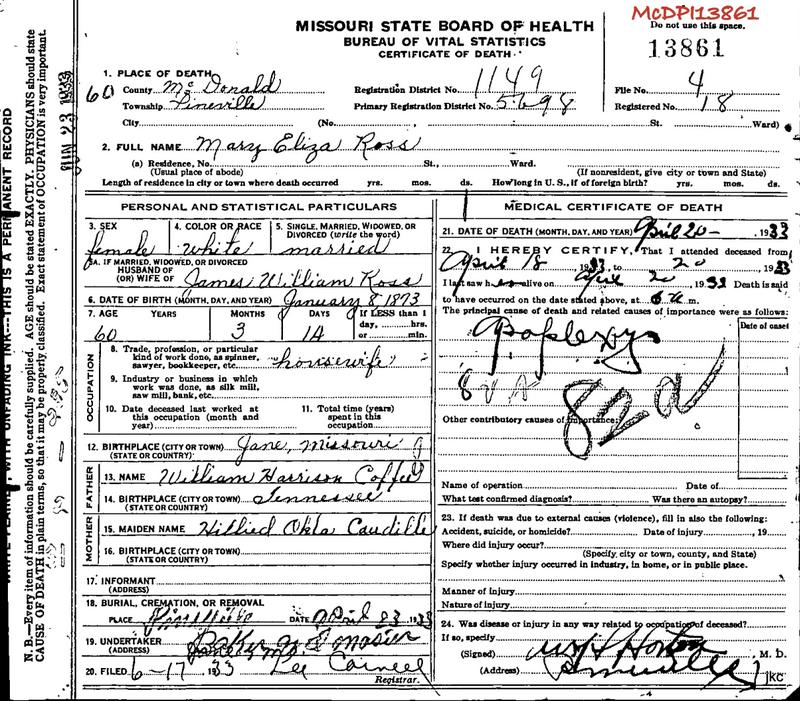 McDPI13861
MISSOURI STATE BOARD OF HEALTH
BUREAU OF VITAL STATISTICS
CERTIFICATE OF DEATH
Do not use this space.
13861
1. PLACE OF DEATH
60 County McDonald Registration District No. 1149 File No. 4
Township Pineville Primary Registration District No. 5698 Registered No. 18
City (No. St. Ward)
2. FULL NAME Mary Eliza Ross
(a) Residence, No. St., Ward.
(Usual place of abode) (If nonresident, give city or town and State)
Length of residence in city or town where death occurred yrs. mos. ds. How long in U. S., if of foreign birth? yrs. mos. ds.
PERSONAL AND STATISTICAL PARTICULARS
3. SEX 4. COLOR OR RACE 5. SINGLE, MARRIED, WIDOWED, OR
DIVORCED (write the word)
female white married
5A. IF MARRIED, WIDOWED, OR DIVORCED
HUSBAND OF
(OR) WIFE OF James William Ross
6. DATE OF BIRTH (MONTH, DAY, AND YEAR) January 8 1873
7. AGE YEARS MONTHS DAYS If LESS than 1
day, hrs.
or min.
60 3 14
OCCUPATION
8. Trade, profession, or particular
kind of work done, as spinner,
sawyer, bookkeeper, etc. housewife
9. Industry or business in which
work was done, as silk mill,
saw mill, bank, etc.
10. Date deceased last worked at
this occupation (month and
year)
11. Total time (years)
spent in this
occupation
12. BIRTHPLACE (CITY OR TOWN) Jane, Missouri
(STATE OR COUNTRY)
FATHER
13. NAME William Harrison Coffee
14. BIRTHPLACE (CITY OR TOWN) Tennessee
(STATE OR COUNTRY)
MOTHER
15. MAIDEN NAME Okla Caudill
16. BIRTHPLACE (CITY OR TOWN)
(STATE OR COUNTRY)
17. INFORMANT
(ADDRESS)
18. BURIAL, CREMATION, OR REMOVAL
PLACE Pineville DATE April 23 1933
19. UNDERTAKER
(ADDRESS)
20. FILED 6-17 1933 Lee
Registrar.
MEDICAL CERTIFICATE OF DEATH
21. DATE OF DEATH (MONTH, DAY, AND YEAR) April 20 - 1933
22. I HEREBY CERTIFY, That I attended deceased from
April 18 1933, to 20 1933
I last saw h alive on April 20 1933 Death is said
to have occurred on the date stated above, at 6 m.
The principal cause of death and related causes of importance were as follows:
Date of onset
Apoplexy
82a
Other contributory causes of importance:
Name of operation Date of
What test confirmed diagnosis? Was there an autopsy?
23. If death was due to external causes (violence), fill in also the following:
Accident, suicide, or homicide? Date of injury , 19
Where did injury occur?
(Specify city or town, county, and State)
Specify whether injury occurred in industry, in home, or in public place.
Manner of injury
Nature of injury
24. Was disease or injury in any way related to occupation of deceased?
If so, specify
(Signed) Horton M. D.
(Address) Pineville
jkc
JUN 23 1933
N. B.—Every item of information should be carefully supplied. AGE should be stated EXACTLY. PHYSICIANS should state
CAUSE OF DEATH in plain terms, so that it may be properly classified. Exact statement of OCCUPATION is very important.
WITH UNFADING INK---THIS IS A PERMANENT RECORD